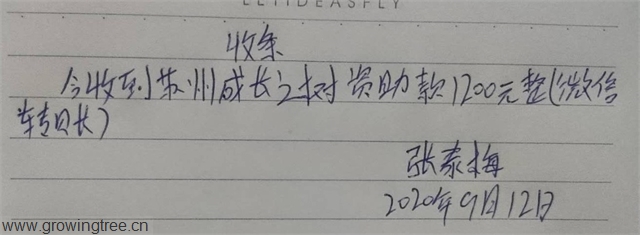 LETIDEASFLY
收条
今收到苏州成长之树资助款1200元整(微信
转账)
张泰梅
2020年9月12日
www.growingtree.cn